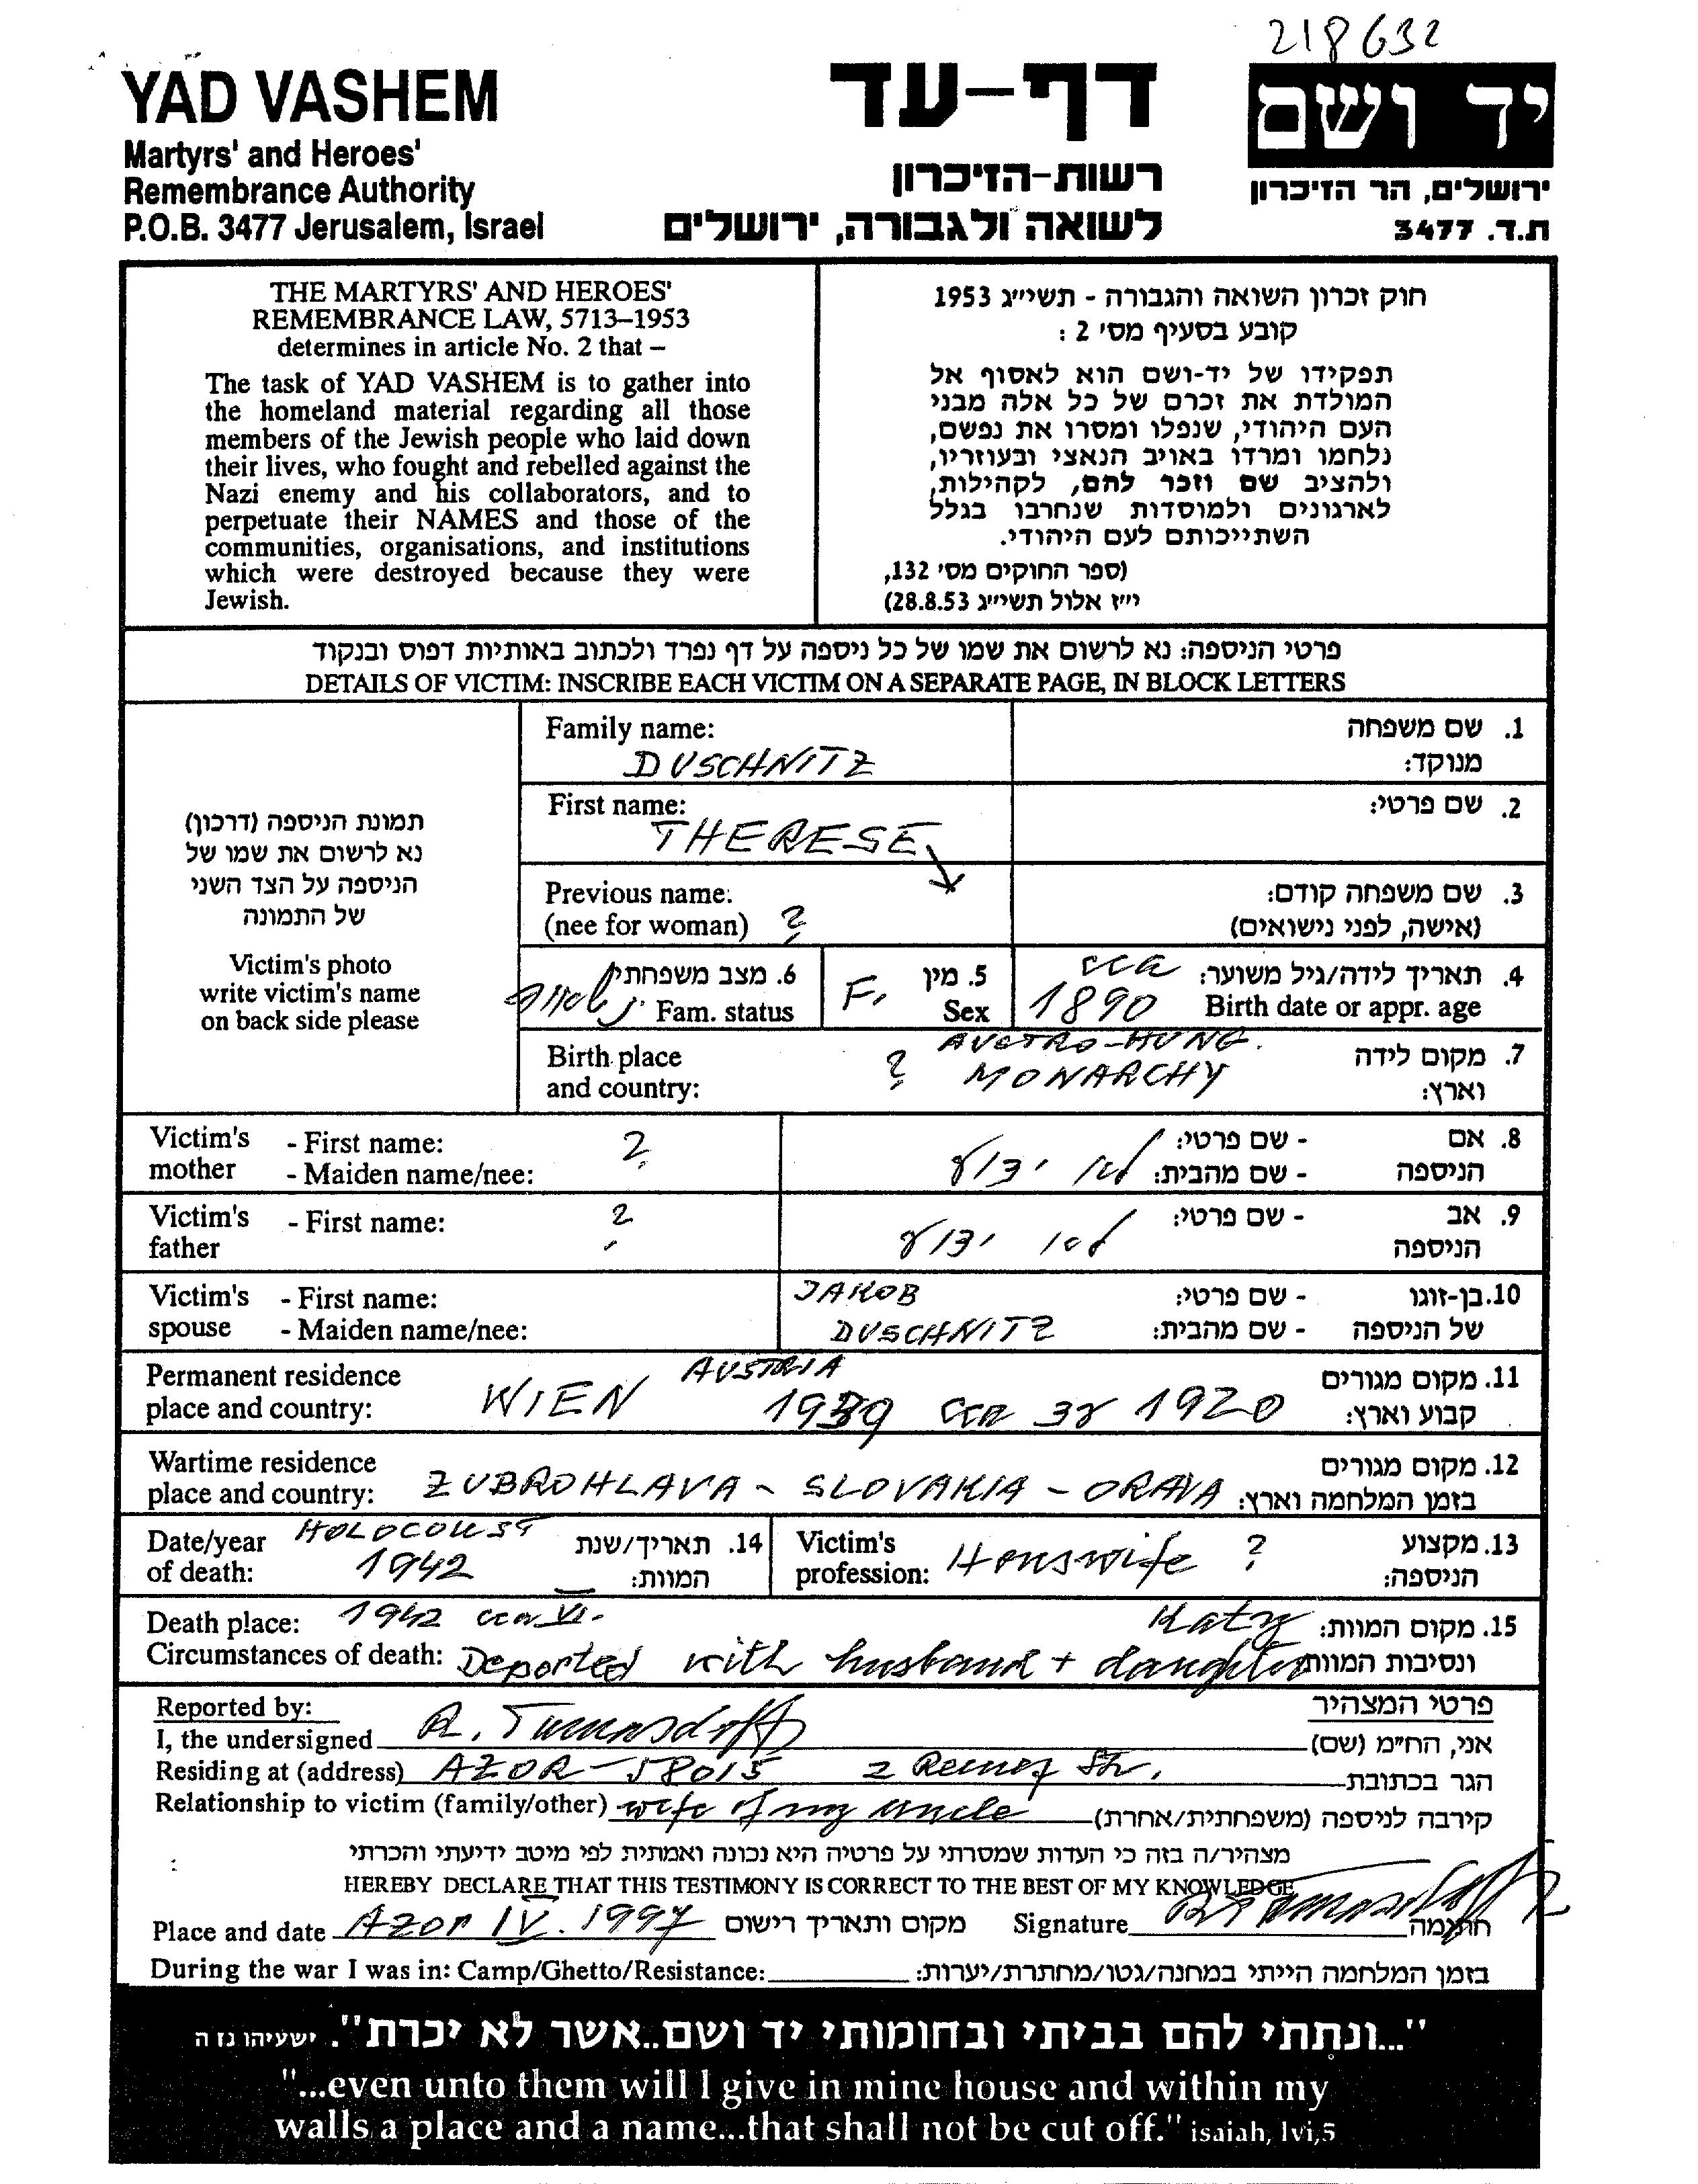 218632
YAD VASHEM
Martyrs' and Heroes'
Remembrance Authority
P.O.B. 3477 Jerusalem, Israel
דף-עד
רשות-הזיכרון
לשואה ולגבורה, ירושלים
יד ושם
ירושלים, הר הזיכרון
ת.ד. 3477
THE MARTYRS' AND HEROES'
REMEMBRANCE LAW, 5713–1953
determines in article No. 2 that –
The task of YAD VASHEM is to gather into
the homeland material regarding all those
members of the Jewish people who laid down
their lives, who fought and rebelled against the
Nazi enemy and his collaborators, and to
perpetuate their NAMES and those of the
communities, organisations, and institutions
which were destroyed because they were
Jewish.
חוק זכרון השואה והגבורה - תשי״ג 1953
קובע בסעיף מס׳ 2 :
תפקידו של יד-ושם הוא לאסוף אל
המולדת את זכרם של כל אלה מבני
העם היהודי, שנפלו ומסרו את נפשם,
נלחמו ומרדו באויב הנאצי ובעוזריו,
ולהציב שם וזכר להם, לקהילות,
לארגונים ולמוסדות שנחרבו בגלל
השתייכותם לעם היהודי.
(ספר החוקים מס׳ 132,
י״ז אלול תשי״ג 28.8.53)
פרטי הניספה: נא לרשום את שמו של כל ניספה על דף נפרד ולכתוב באותיות דפוס ובנקוד
DETAILS OF VICTIM: INSCRIBE EACH VICTIM ON A SEPARATE PAGE, IN BLOCK LETTERS
תמונת הניספה (דרכון)
נא לרשום את שמו של
הניספה על הצד השני
של התמונה
Victim's photo
write victim's name
on back side please
Family name:
DUSCHNITZ
1. שם משפחה
מנוקד:
First name:
THERESE
2. שם פרטי:
Previous name:
(nee for woman) ?
3. שם משפחה קודם:
(אישה, לפני נישואים)
6. מצב משפחתי
Fam. status
5. מין
Sex F.
4. תאריך לידה/גיל משוער: cca
Birth date or appr. age 1890
Birth place
and country: ? AUSTRO-HUNG.
MONARCHY
7. מקום לידה
וארץ:
Victim's mother - First name: ?
- Maiden name/nee:
8. אם הניספה - שם פרטי:
- שם מהבית: לא ידוע
Victim's father - First name: ?
9. אב הניספה - שם פרטי: לא ידוע
Victim's spouse - First name: JAKOB
- Maiden name/nee: DUSCHNITZ
10. בן-זוגו של הניספה - שם פרטי:
- שם מהבית:
Permanent residence
place and country: WIEN AUSTRIA
1939 cca עד 1920
11. מקום מגורים
קבוע וארץ:
Wartime residence
place and country: ZUBROHLAVA - SLOVAKIA - ORAVA
12. מקום מגורים
בזמן המלחמה וארץ:
Date/year
of death: HOLOCOUST
1942
14. תאריך/שנת
המוות:
Victim's
profession: Houswife ?
13. מקצוע
הניספה:
Death place: 1942 cca VI.
Katy
15. מקום המוות:
Circumstances of death: Deported with husband + daughter
ונסיבות המוות
Reported by:
פרטי המצהיר
I, the undersigned
אני, הח״מ (שם)
Residing at (address) AZOR - 58015 2 Str.
הגר בכתובת
Relationship to victim (family/other) wife of my uncle
קירבה לניספה (משפחתית/אחרת)
מצהיר/ה בזה כי העדות שמסרתי על פרטיה היא נכונה ואמתית לפי מיטב ידיעתי והכרתי
HEREBY DECLARE THAT THIS TESTIMONY IS CORRECT TO THE BEST OF MY KNOWLEDGE
Place and date AZOR IV. 1997
מקום ותאריך רישום
Signature
חתימה
During the war I was in: Camp/Ghetto/Resistance:
בזמן המלחמה הייתי במחנה/גטו/מחתרת/יערות:
"...ונתתי להם בביתי ובחומותי יד ושם..אשר לא יכרת". ישעיהו נז ה
"...even unto them will I give in mine house and within my
walls a place and a name...that shall not be cut off." isaiah, lvi,5